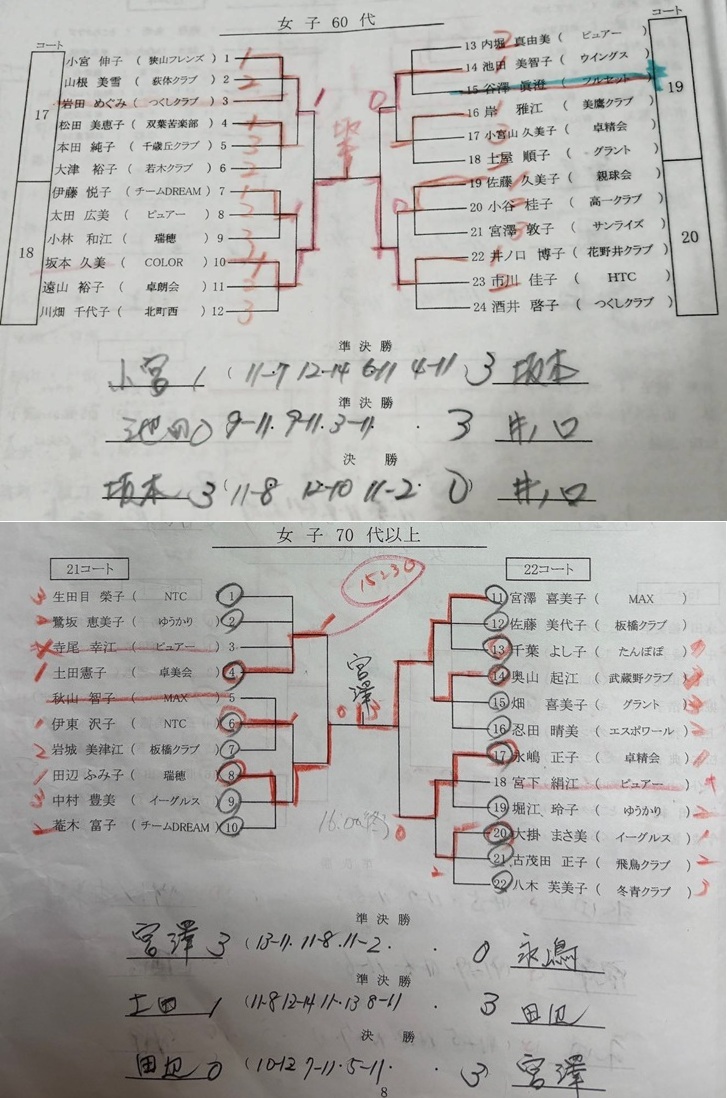 女子60代
コート
17
18
小宮 伸子 ( 狭山フレンズ ) 1
山根 美雪 ( 萩体クラブ ) 2
岩田 めぐみ ( つくしクラブ ) 3
松田 美恵子 ( 双葉苦楽部 ) 4
本田 純子 ( 千歳丘クラブ ) 5
大津 裕子 ( 若木クラブ ) 6
伊藤 悦子 ( チームDREAM ) 7
太田 広美 ( ピュアー ) 8
小林 和江 ( 瑞穂 ) 9
坂本 久美 ( COLOR ) 10
遠山 裕子 ( 卓朗会 ) 11
川畑 千代子 ( 北町西 ) 12
坂本
コート
19
20
13 内堀 真由美 ( ピュアー )
14 池田 美智子 ( ウイングス )
15 谷澤 眞澄 ( フルセット )
16 岸 雅江 ( 美鷹クラブ )
17 小宮山 久美子 ( 卓精会 )
18 土屋 順子 ( グラント )
19 佐藤 久美子 ( 親球会 )
20 小谷 桂子 ( 高一クラブ )
21 宮澤 敦子 ( サンライズ )
22 井ノ口 博子 ( 花野井クラブ )
23 市川 佳子 ( HTC )
24 酒井 啓子 ( つくしクラブ )
準決勝
小宮 1 ( 11-7 12-14 6-11 4-11 ) 3 坂本
準決勝
池田 0 9-11. 9-11. 3-11. 3 井ノ口
決勝
坂本 3 ( 11-8 12-10 11-2. 0 ) 井ノ口
女子70代以上
21コート
3 生田目 榮子 ( NTC ) 1
鷲坂 恵美子 ( ゆうかり ) 2
寺尾 幸江 ( ピュアー ) 3
1 土田憲子 ( 卓美会 ) 4
秋山 智子 ( MAX ) 5
1 伊東 沢子 ( NTC ) 6
2 岩城 美津江 ( 板橋クラブ ) 7
1 田辺 ふみ子 ( 瑞穂 ) 8
3 中村 豊美 ( イーグルス ) 9
2 菴木 富子 ( チームDREAM ) 10
15230
宮澤
16:00(終)
22コート
11 宮澤 喜美子 ( MAX )
12 佐藤 美代子 ( 板橋クラブ )
13 千葉 よし子 ( たんぽぽ )
14 奥山 起江 ( 武蔵野クラブ )
15 畑 喜美子 ( グラント )
16 忍田 晴美 ( エスポワール )
17 永嶋 正子 ( 卓精会 )
18 宮下 絹江 ( ピュアー )
19 堀江 玲子 ( ゆうかり )
20 大掛 まさ美 ( イーグルス )
21 古茂田 正子 ( 飛鳥クラブ )
22 八木 芙美子 ( 冬青クラブ )
準決勝
宮澤 3 ( 13-11. 11-8. 11-2. 0 永嶋
準決勝
土田 1 ( 11-8 12-14 11-13 8-11 3 田辺
決勝
田辺 0 ( 10-12 7-11. 5-11. 3 ) 宮澤
8